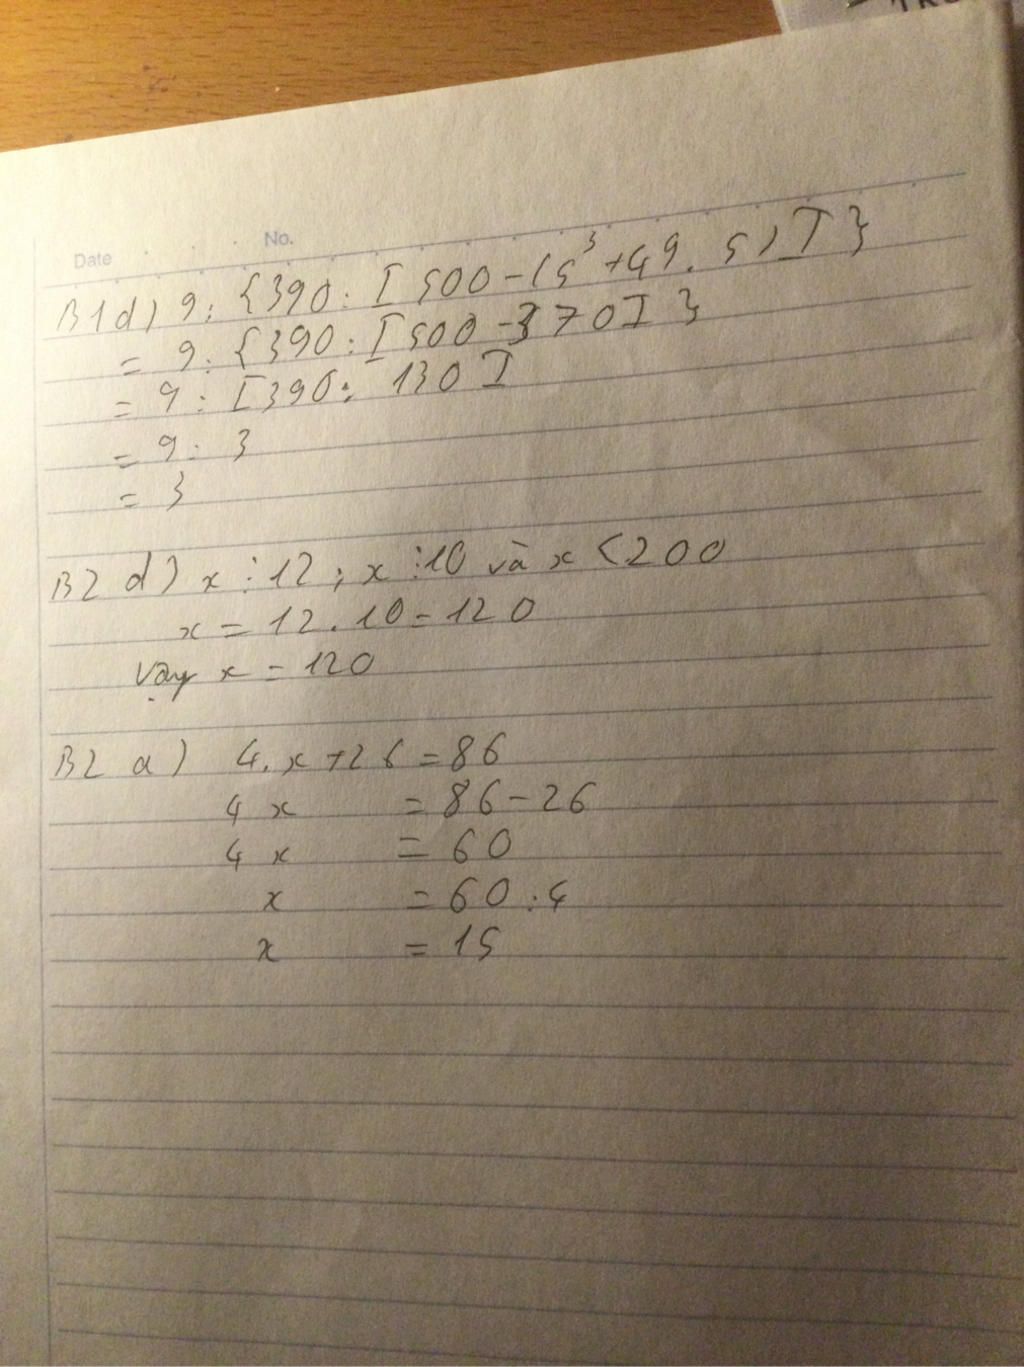 Date No.
B1d) 9: {390: [500-(5³+49. 5)]}
= 9: {390: [500-370]}
= 9: [390: 130]
= 9: 3
= 3
B2 d) x ⋮ 12; x ⋮ 10 và x < 200
x = 12. 10 = 120
Vậy x = 120
B2 a) 4. x + 26 = 86
4 x = 86 - 26
4 x = 60
x = 60 : 4
x = 15